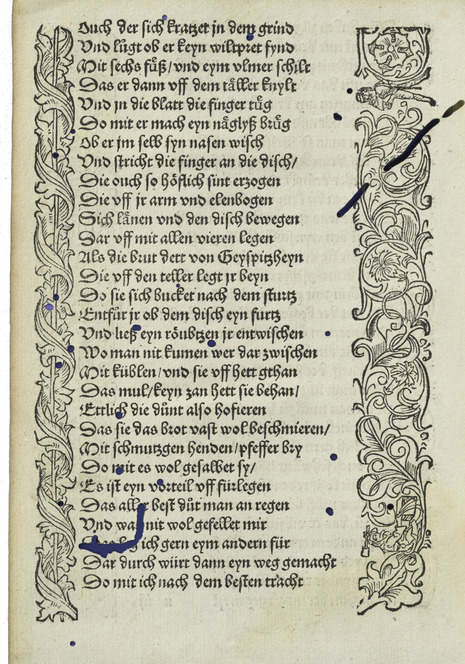 Ouch der sich kratzet jn dem grind
Vnd lůgt ob er keyn wiltpret fynd
Mit sechs fůß/vnd eym vlmer schilt
Das er dann vff dem täller knylt
Vnd jn die blatt die finger tůg
Do mit er mach eyn näglyß brůg
Ob er jm selb syn nasen wisch
Vnd stricht die finger an die disch/
Die ouch so höflich sint erzogen
Die vff jr arm vnd elenbogen
Sich länen vnd den disch bewegen
Dar vff mit allen vieren legen
Als die brut dett von Geyspitzheyn
Die vff den teller legt jr beyn
Do sie sich bucket nach dem sturtz
Entfůr jr ob dem disch eyn furtz
Vnd ließ eyn röubtzen jr entwischen
Wo man nit kumen wer dar zwischen
Mit küblen/vnd sie vff hett gthan
Das mul/keyn zan hett sie behan/
Ettlich die důnt also hofieren
Das sie das brot vast wol beschmieren/
Mit schmutzgen henden/pfeffer bry
Do mit es wol gesalbet sy/
Es ist eyn vorteil vff fürlegen
Das aller best důt man an regen
Vnd was nit wol gefellet mir
ich gern eym andern für
Dar durch würt dann eyn weg gemacht
Do mit ich nach dem besten tracht